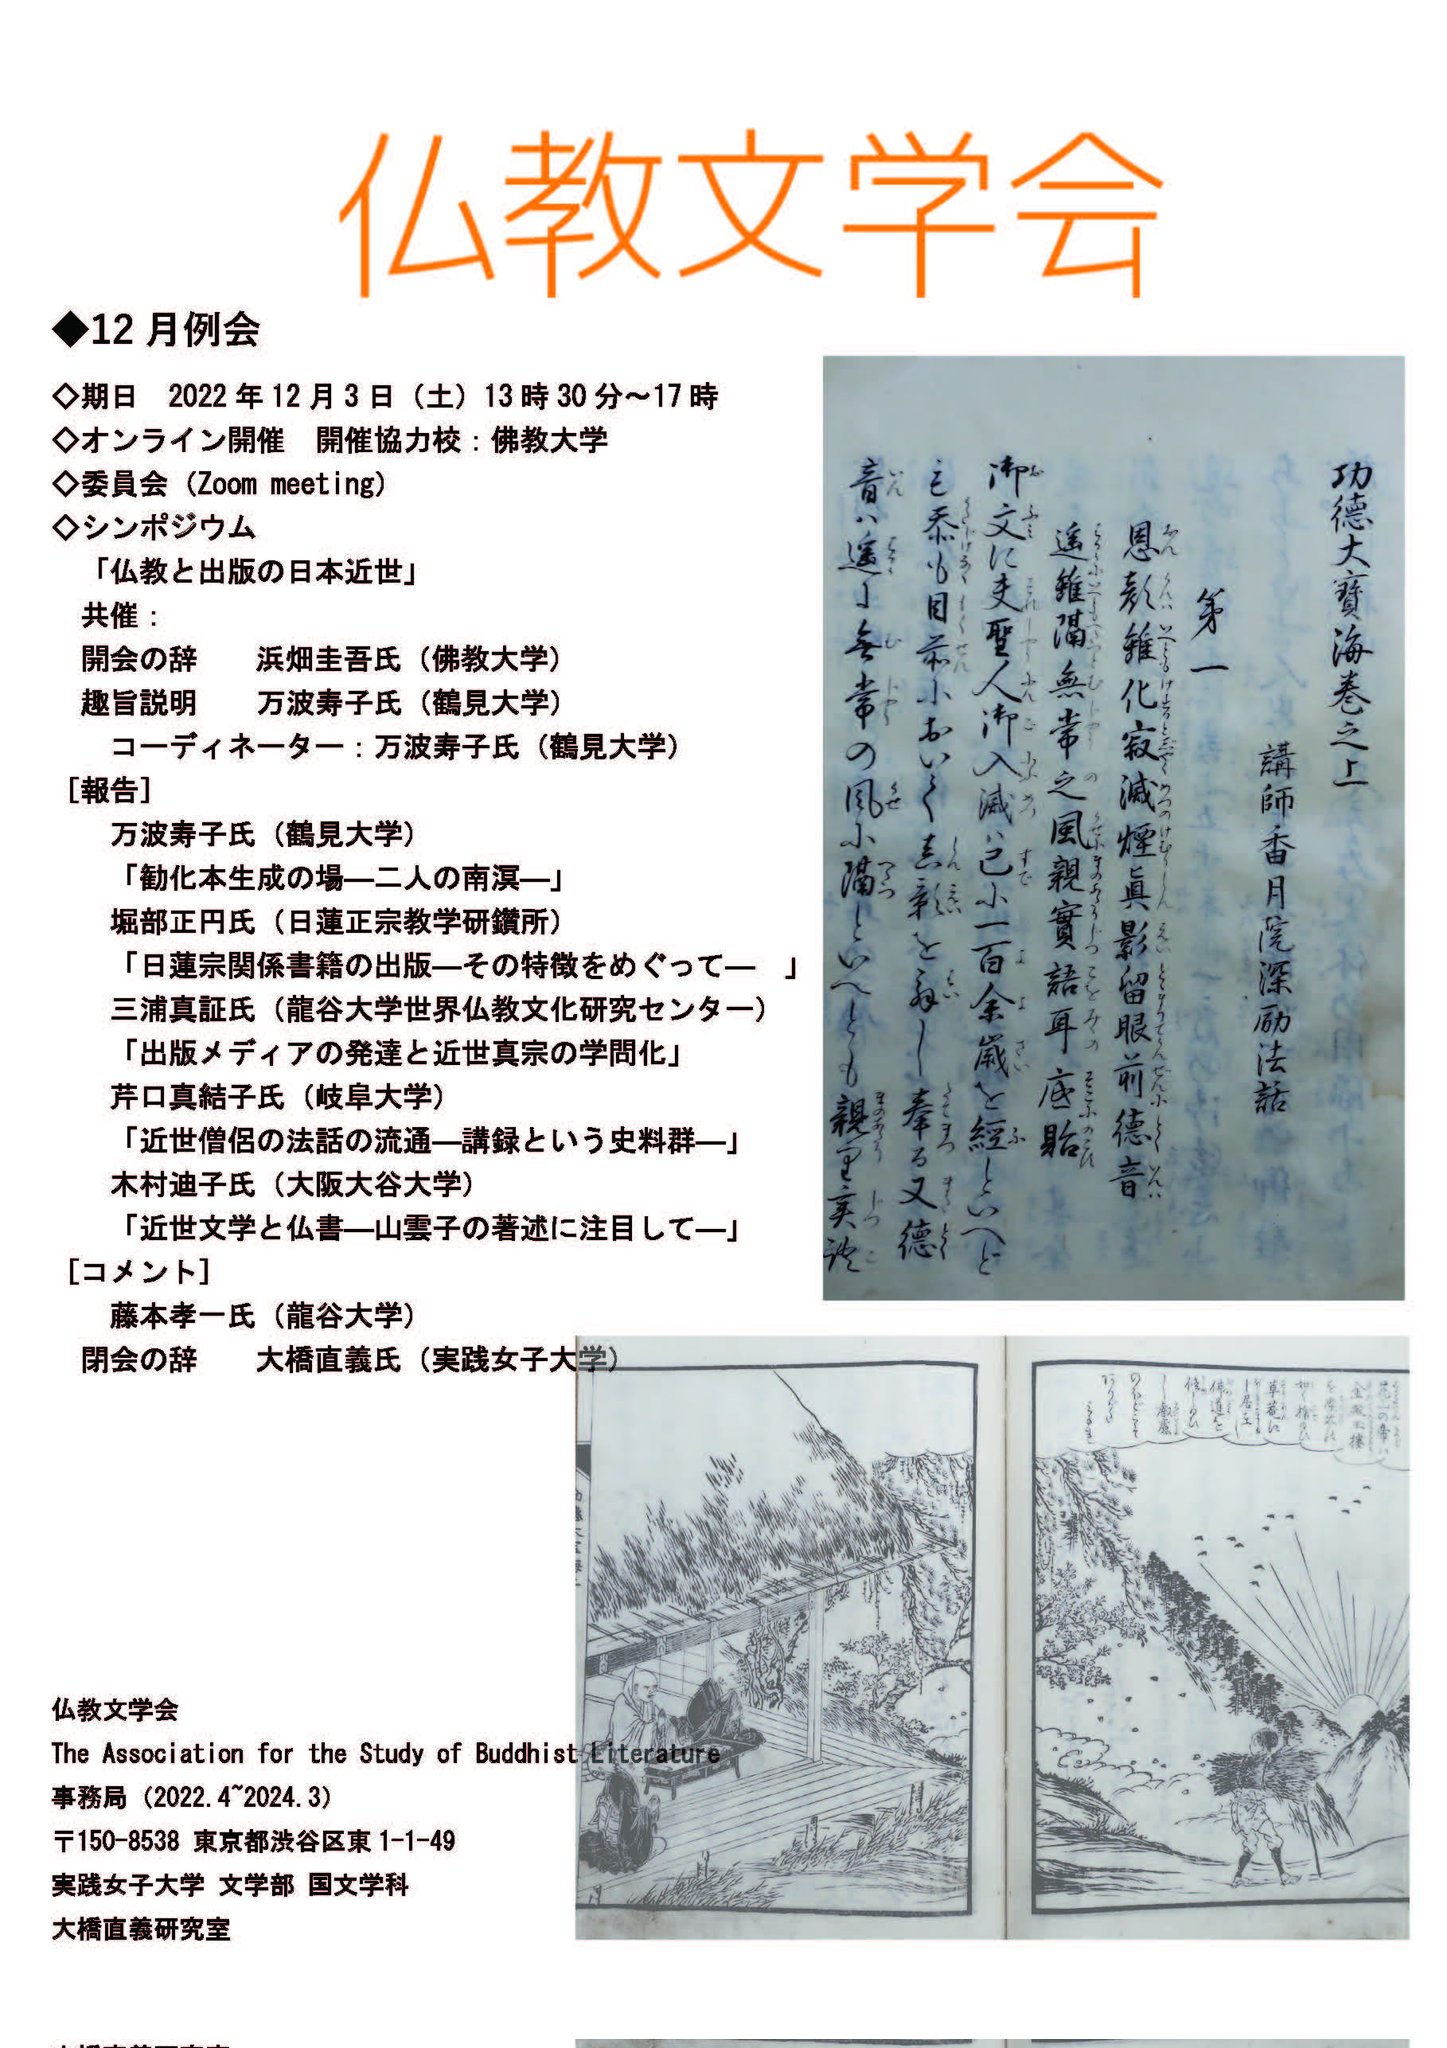 仏教文学会
◆12月例会
◇期日　2022年12月3日（土）13時30分～17時
◇オンライン開催　開催協力校：佛教大学
◇委員会（Zoom meeting）
◇シンポジウム
「仏教と出版の日本近世」
共催：
開会の辞　　浜畑圭吾氏（佛教大学）
趣旨説明　　万波寿子氏（鶴見大学）
コーディネーター：万波寿子氏（鶴見大学）
［報告］
万波寿子氏（鶴見大学）
「勧化本生成の場―二人の南溟―」
堀部正円氏（日蓮正宗教学研鑽所）
「日蓮宗関係書籍の出版―その特徴をめぐって―　」
三浦真証氏（龍谷大学世界仏教文化研究センター）
「出版メディアの発達と近世真宗の学問化」
芹口真結子氏（岐阜大学）
「近世僧侶の法話の流通―講録という史料群―」
木村迪子氏（大阪大谷大学）
「近世文学と仏書―山雲子の著述に注目して―」
［コメント］
藤本孝一氏（龍谷大学）
閉会の辞　　大橋直義氏（実践女子大学）
功德大寶海巻之上
講師香月院深励法話
第一
恩彰雖化寂滅煙眞影留眼前德音
遥雖隔無常之風親實語耳底貽
御文に夫聖人御入滅ハ已小一百余歳を經といへど
仏教文学会
The Association for the Study of Buddhist Literature
事務局（2022.4~2024.3）
〒150-8538 東京都渋谷区東1-1-49
実践女子大学 文学部 国文学科
大橋直義研究室